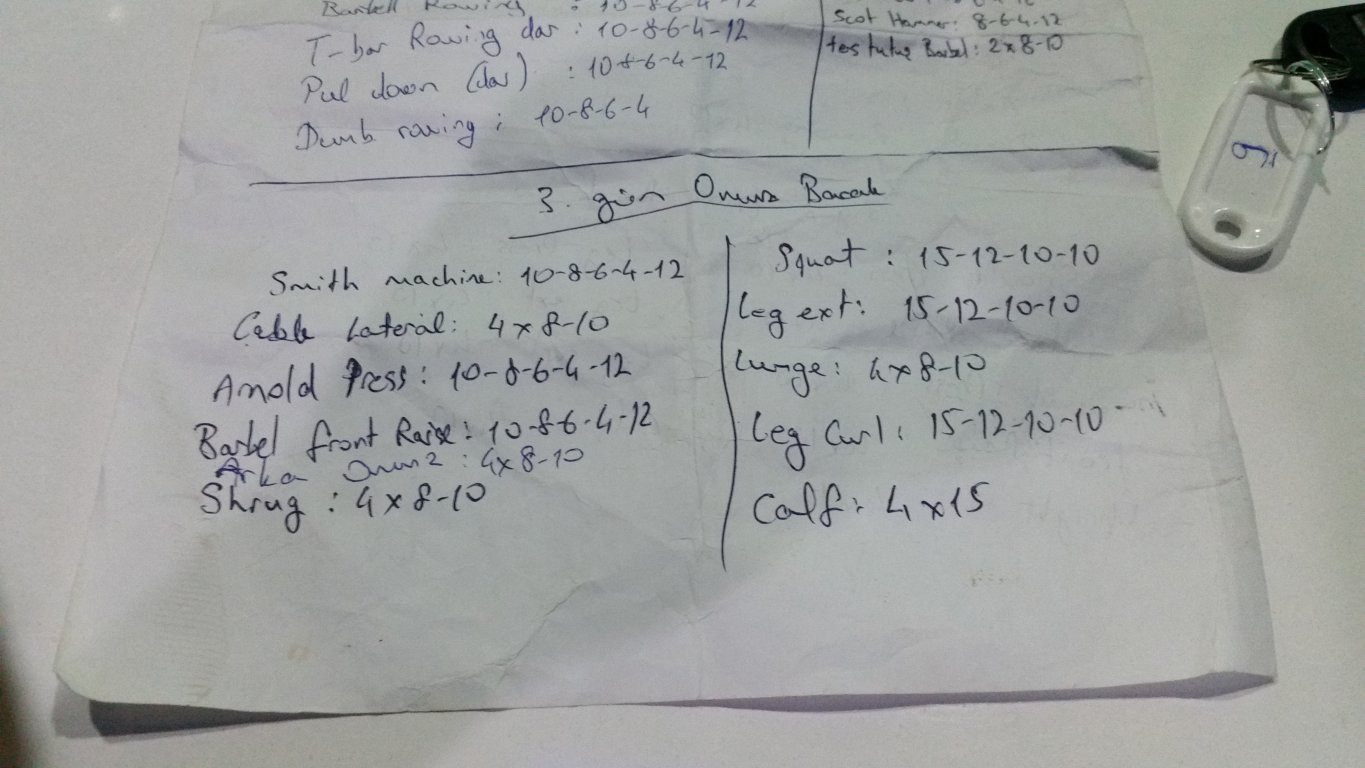 Barbell Rowing : 10-8-6-4-12
T-bar Rowing dar : 10-8-6-4-12
Pul down (dar) : 10-8-6-4-12
Dumb. rowing : 10-8-6-4
Scot Hammer: 8-6-4-12
ters tutuş Barbel : 2x8-10
3. gün Omuz Bacak
Smith machine: 10-8-6-4-12
Cable Lateral: 4x8-10
Arnold Press: 10-8-6-4-12
Barbel front Raise: 10-8-6-4-12
Arka Omuz : 4x8-10
Shrug : 4x8-10
Squat : 15-12-10-10
Leg ext: 15-12-10-10
Lunge: 4x8-10
Leg Curl: 15-12-10-10
Calf: 4x15